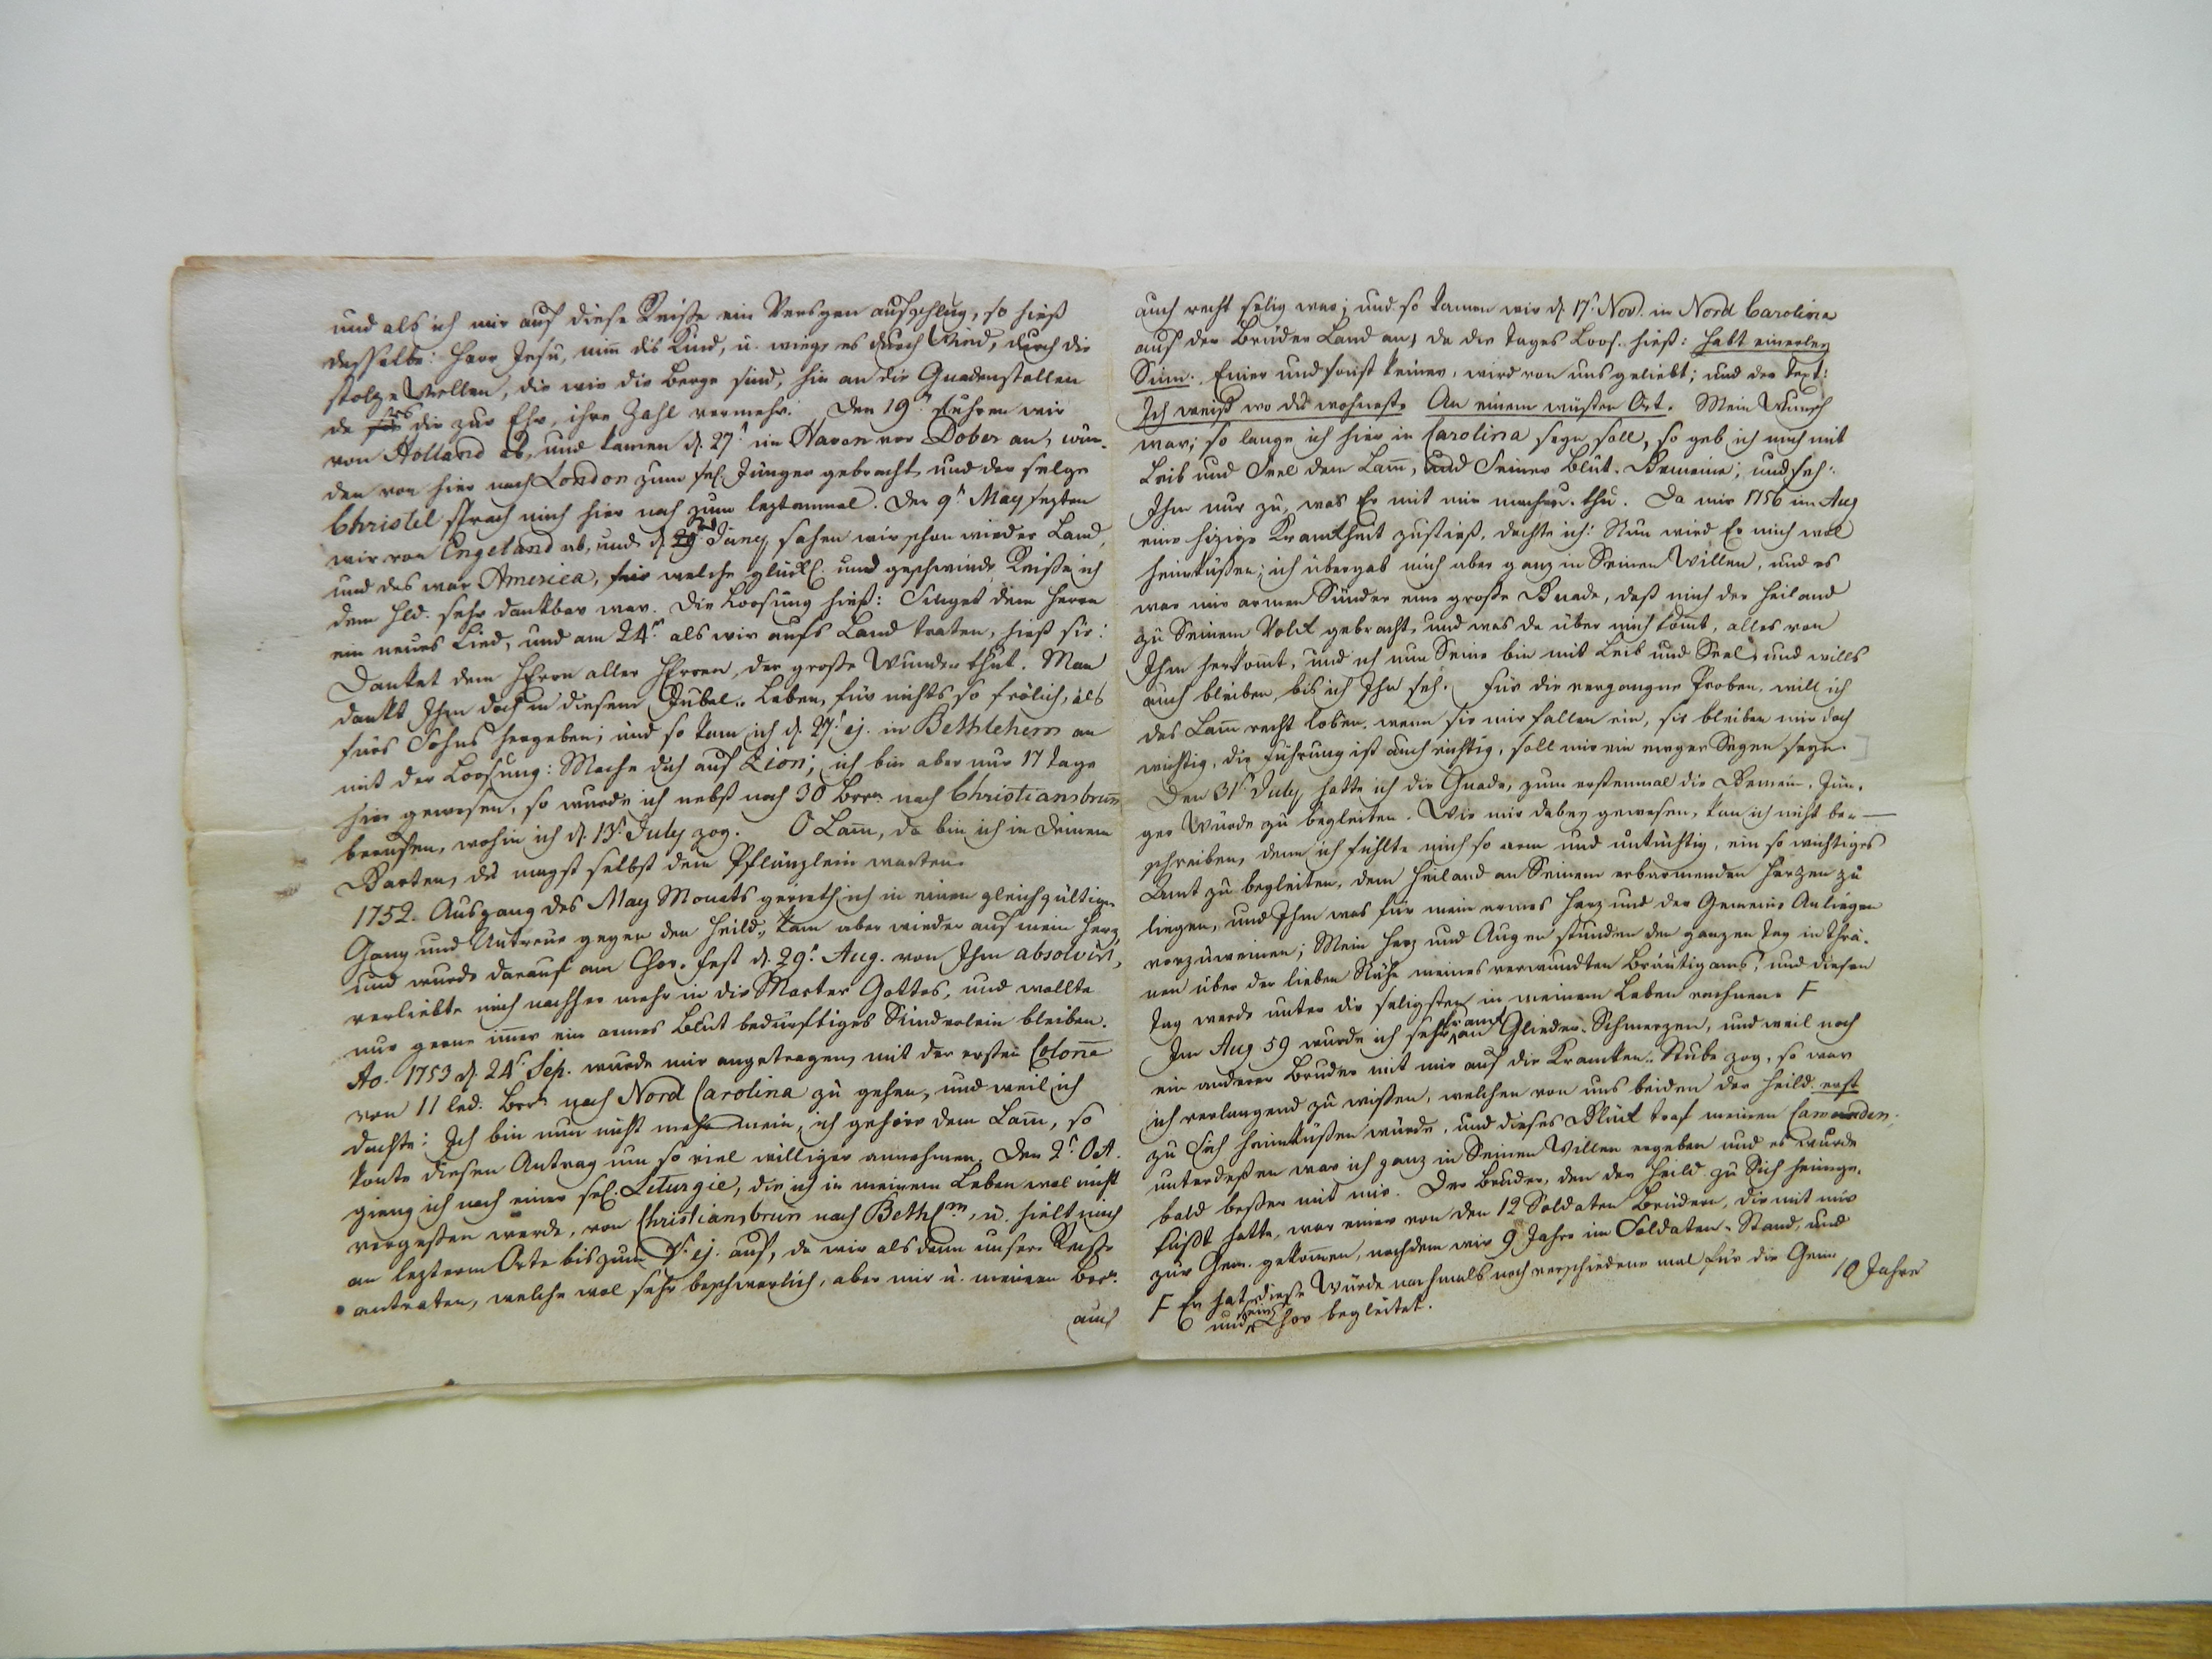 und als ich mir auf diese Reiße ein Versgen aufschlug, so hieß
dasselbe: Herr Jesu, nim̅ dis Kind, u. wiege es durch Wind, durch die
stolze Wellen, die wie die Berge sind, hin an die Gnadenstellen
da sies dir zur Ehr, ihre Zahl vermehr. Den 19t. fuhren wir
von Holland ab, und kamen d. 27t. im Haven vor Dober an, wur-
den von hier nach London zum sel. Jünger gebracht, und der selge
Christel sprach mich hier noch zum leztenmal. Den 9t. May sezten
wir von Engeland ab, und d. Juny sahen wir schon wieder Land,
und das war America, für welche glückl. und geschwinde Reiße ich
dem Hld. sehr dankbar war. Die Loosung hieß: Singet dem Herrn
ein neues Lied, und am 24n. als wir aufs Land traten, hieß sie:
Danket dem HErrn aller HErren, der große Wunder thut. Man
dankt Ihm doch in diesem Jubel-Leben, für nichts so frölich, als
fürs Sohns hergeben; und so kam ich d. 27t. ej. in Bethlehem an
mit der Loosung: Mache dich auf Zion; ich bin aber nur 17 Tage
hier gewesen, so wurde ich nebst noch 30 Brrn. nach Christiansbrun̅
berufen, wohin ich d. 13t. July zog. O Lam̅, da bin ich in deinem
Garten, du magst selbst dem Pflänzlein warten.
1752. Ausgang des May Monats gerieth ich in einen gleichgültigen
Gang und Untreue gegen den Heild., kam aber wieder auf mein Herz
und wurde darauf am Chor-Fest d. 29t. Aug. von Ihm absolvirt,
verliebte mich nachher mehr in die Marter Gottes, und wollte
nur gerne im̅er ein armes Blut bedürftiges Sünderlein bleiben.
Ao. 1753 d. 24t. Sep. wurde mir angetragen, mit der ersten Colon̅e
von 11 led. Brrn nach Nord Carolina zu gehen, und weil ich
dachte: Ich bin nun nicht mehr mein, ich gehöre dem Lam̅, so
konte diesen Antrag um so viel williger annehmen. Den 2t. Oct.
gieng ich nach einer sel. Liturgie, die ich in meinem Leben wol nicht
vergeßen werde, von Christiansbrun̅ nach Bethlm., u. hielt mich
an lezterm Orte bis zum ej. auf, da wir alsdann unsere Reiße
antraten, welche wol sehr beschwerlich, aber mir u. meinen Brrn.
auch
auch recht selig war; und so kamen wir d. 17t. Nov. in Nord Carolina
auf der Brüder Land an, da des Tages Loos. hieß: Habt einerley
Sinn. Einer und sonst keiner, wird von uns geliebt; und der Text:
Ich weiß wo du wohnest. An einem wüsten Ort. Mein Wunsch
war; so lange ich hier in Carolina seyn soll, so geb ich mich mit
Leib und Seel dem Lam̅, und Seiner Blut-Gemeine; und seh:
Ihm nur zu, was Er mit mir mach u. thu. Da mir 1756 im Aug
eine hizige Krankheit zustieß, dachte ich: Nun wird Er mich wol
heimküßen; ich übergab mich aber ganz in Seinen Willen, und es
war mir armen Sünder eine große Gnade, daß mich der Heiland
zu Seinem Volck gebracht, und was da über mich kom̅t, alles von
Ihm herkom̅t, und ich nun Seine bin mit Leib und Seel, und wills
auch bleiben, bis ich Ihn seh. Für die vergangne Proben, will ich
das Lam̅ recht loben, wenn sie mir fallen ein, sie bleiben mir doch
wichtig, die Führung ist auch richtig, soll mir ein ewger Segen seyn.
Den 31t. July hatte ich die Gnade, zum erstenmal die Gemein-Jün-
ger Würde zu begleiten. Wie mir dabey gewesen, kan ich nicht be-
schreiben, denn ich fühlte mich so arm und untüchtig, ein so wichtiges
Amt zu begleiten, dem Heiland an Seinem erbarmenden Herzen zu
liegen, und Ihm was für mein armes Herz und der Gemeine Anliegen
vorzuweinen; Mein Herz und Augen stunden den ganzen Tag in Thrä-
nen über der lieben Nähe meines verwundten Bräutigams, und diesen
Tag werde unter die seligsten in meinem Leben rechnen. F
Im Aug 59 wurde ich sehr krank an Glieder-Schmerzen, und weil noch
ein anderer Bruder mit mir auf die Krancken-Stube zog, so war
ich verlangend zu wißen, welchen von uns beiden der Heild. erst
zu Sich heimküßen würde, und dieses Glück traf meinen Camaraden;
unterdeßen war ich ganz in Seinen Willen ergeben und es wurde
bald beßer mit mir. Der Bruder, den der Heild. zu Sich heimge-
küßt hatte, war einer von den 12 Soldaten Brüdern, die mit mir
zur Gem. gekom̅en, nachdem wir 9 Jahre im Soldaten-Stand, und
10 Jahre
F Er hat diese Würde nochmals noch verschiedene mal für die Gem
und sein Chor begleitet.